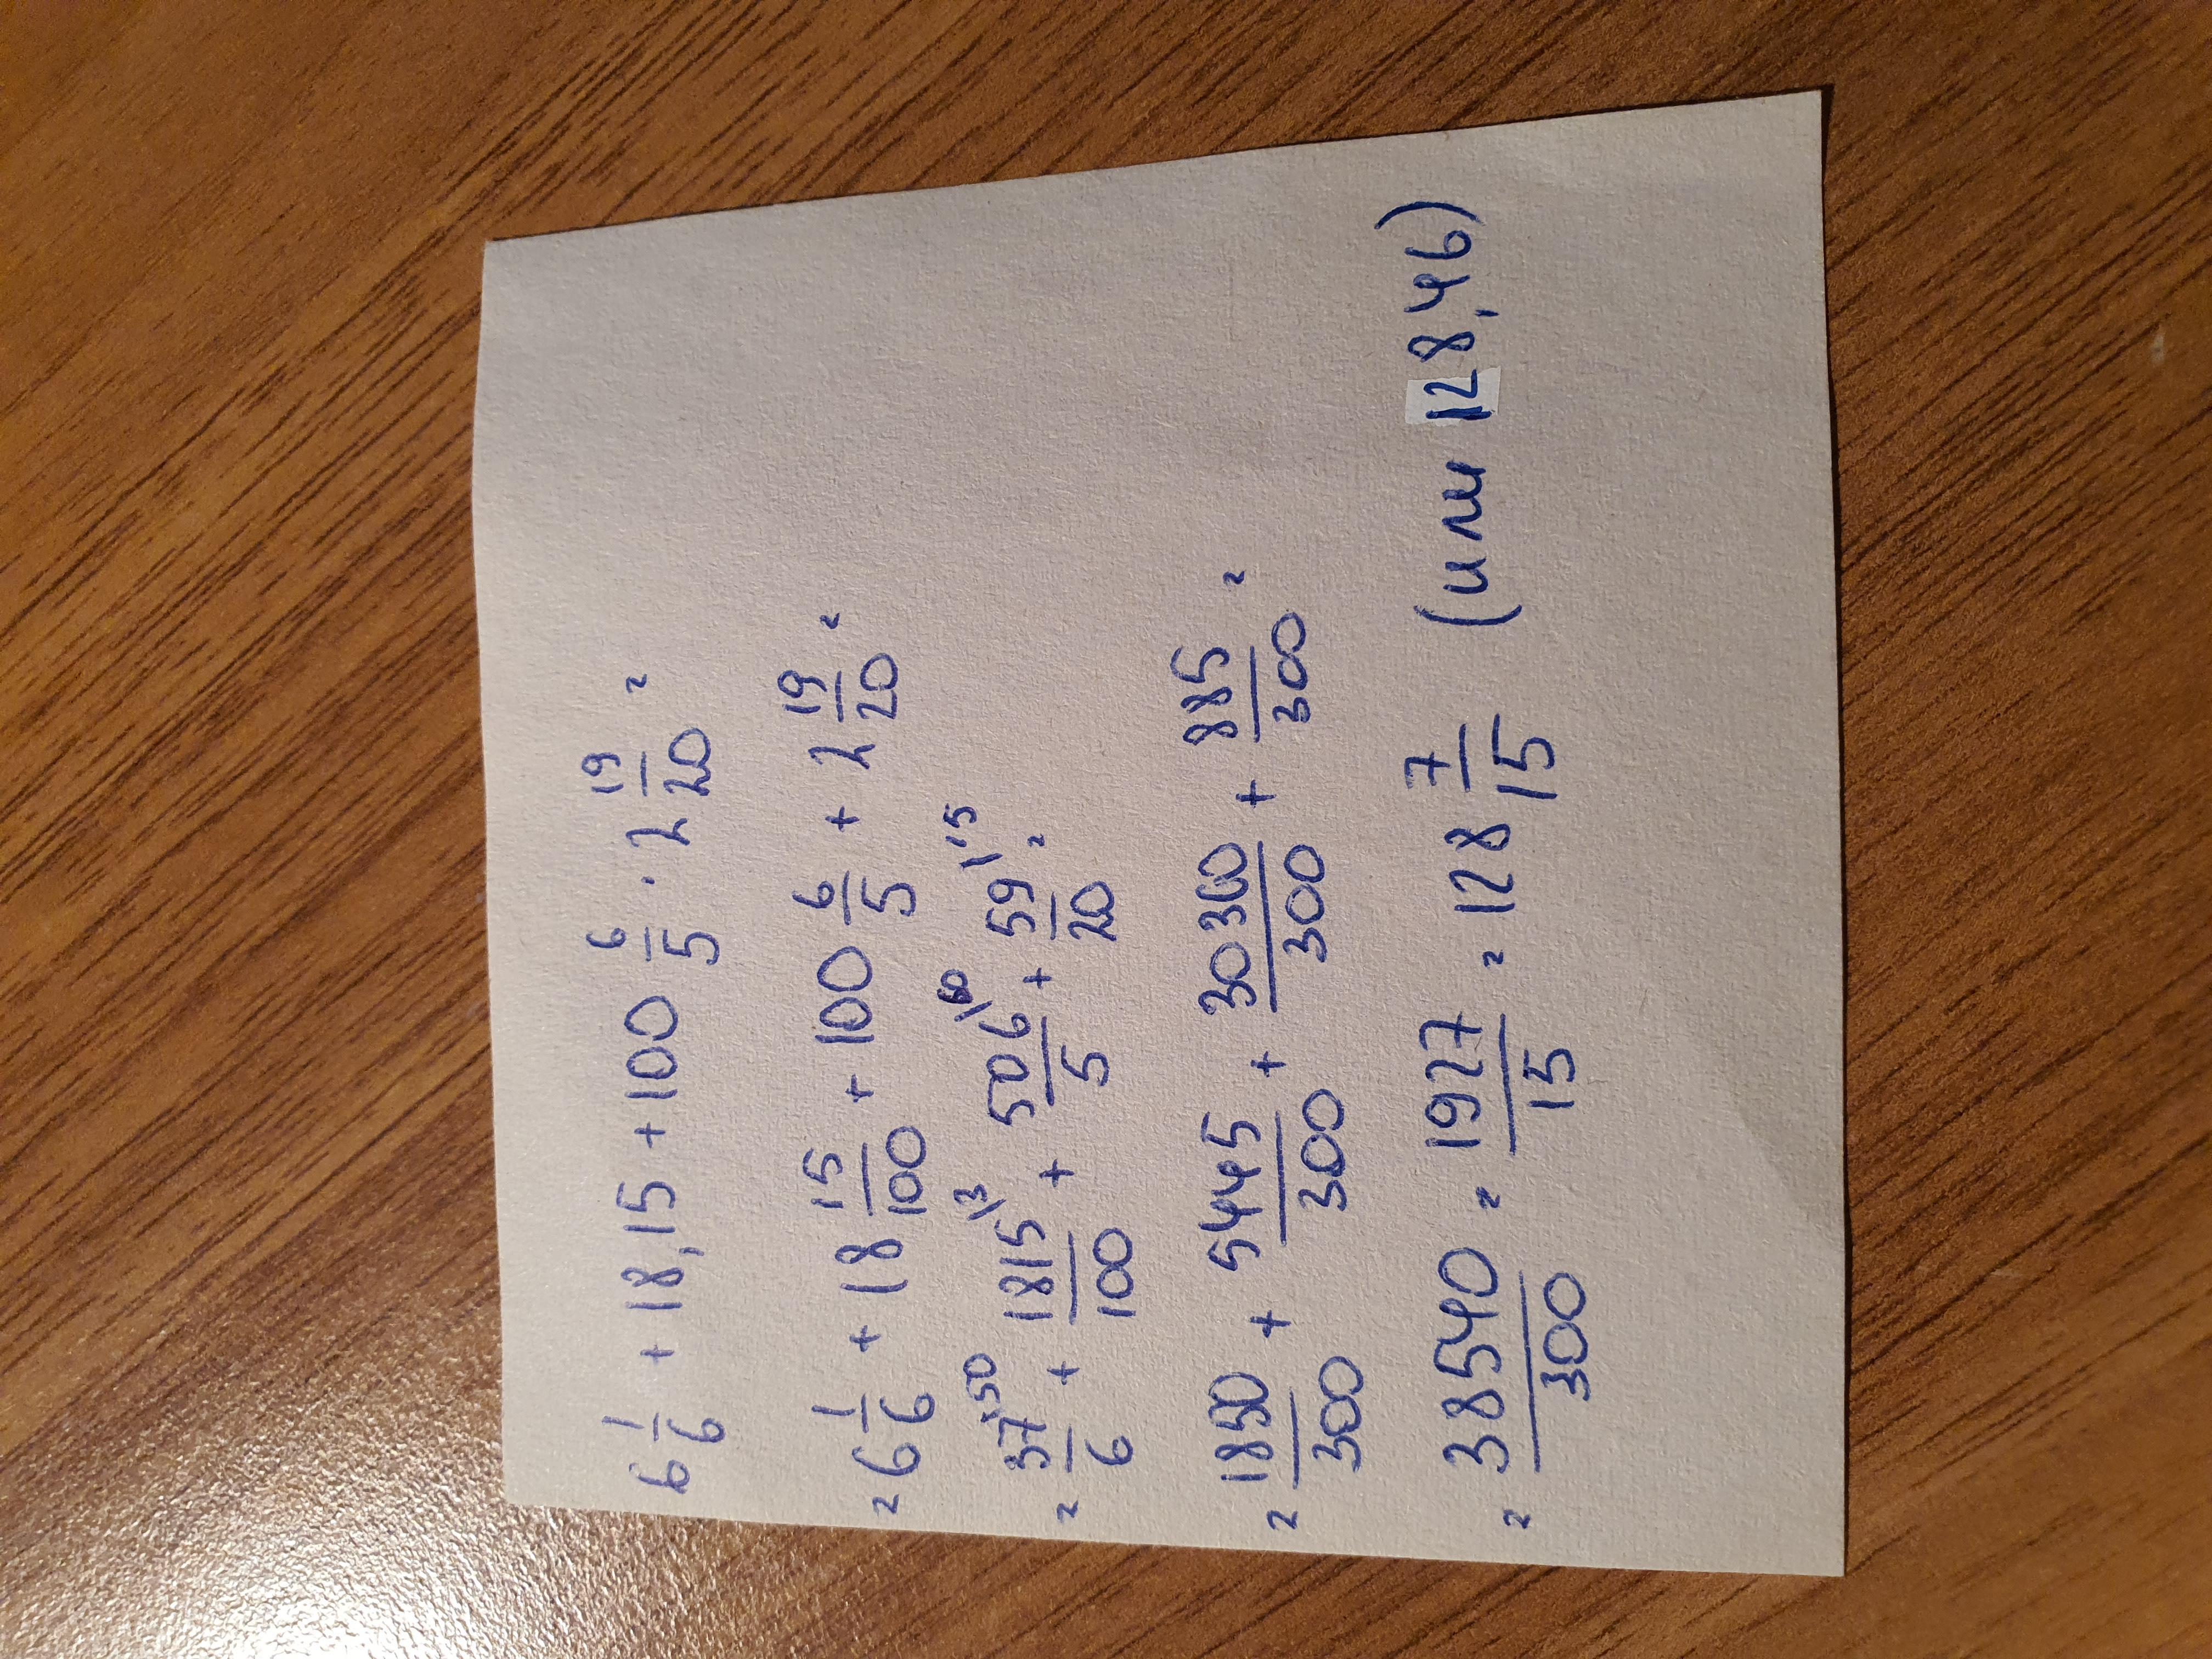 6 1/6 + 18,15 + 100 6/5 · 2 19/20 =
= 6 1/6 + 18 15/100 + 100 6/5 + 2 19/20 =
= 37/6 \50 + 1815/100 \3 + 506/5 \60 + 59/20 \15 =
= 1850/300 + 5445/300 + 30360/300 + 885/300 =
= 38540/300 = 1927/15 = 128 7/15 (или 128,46)